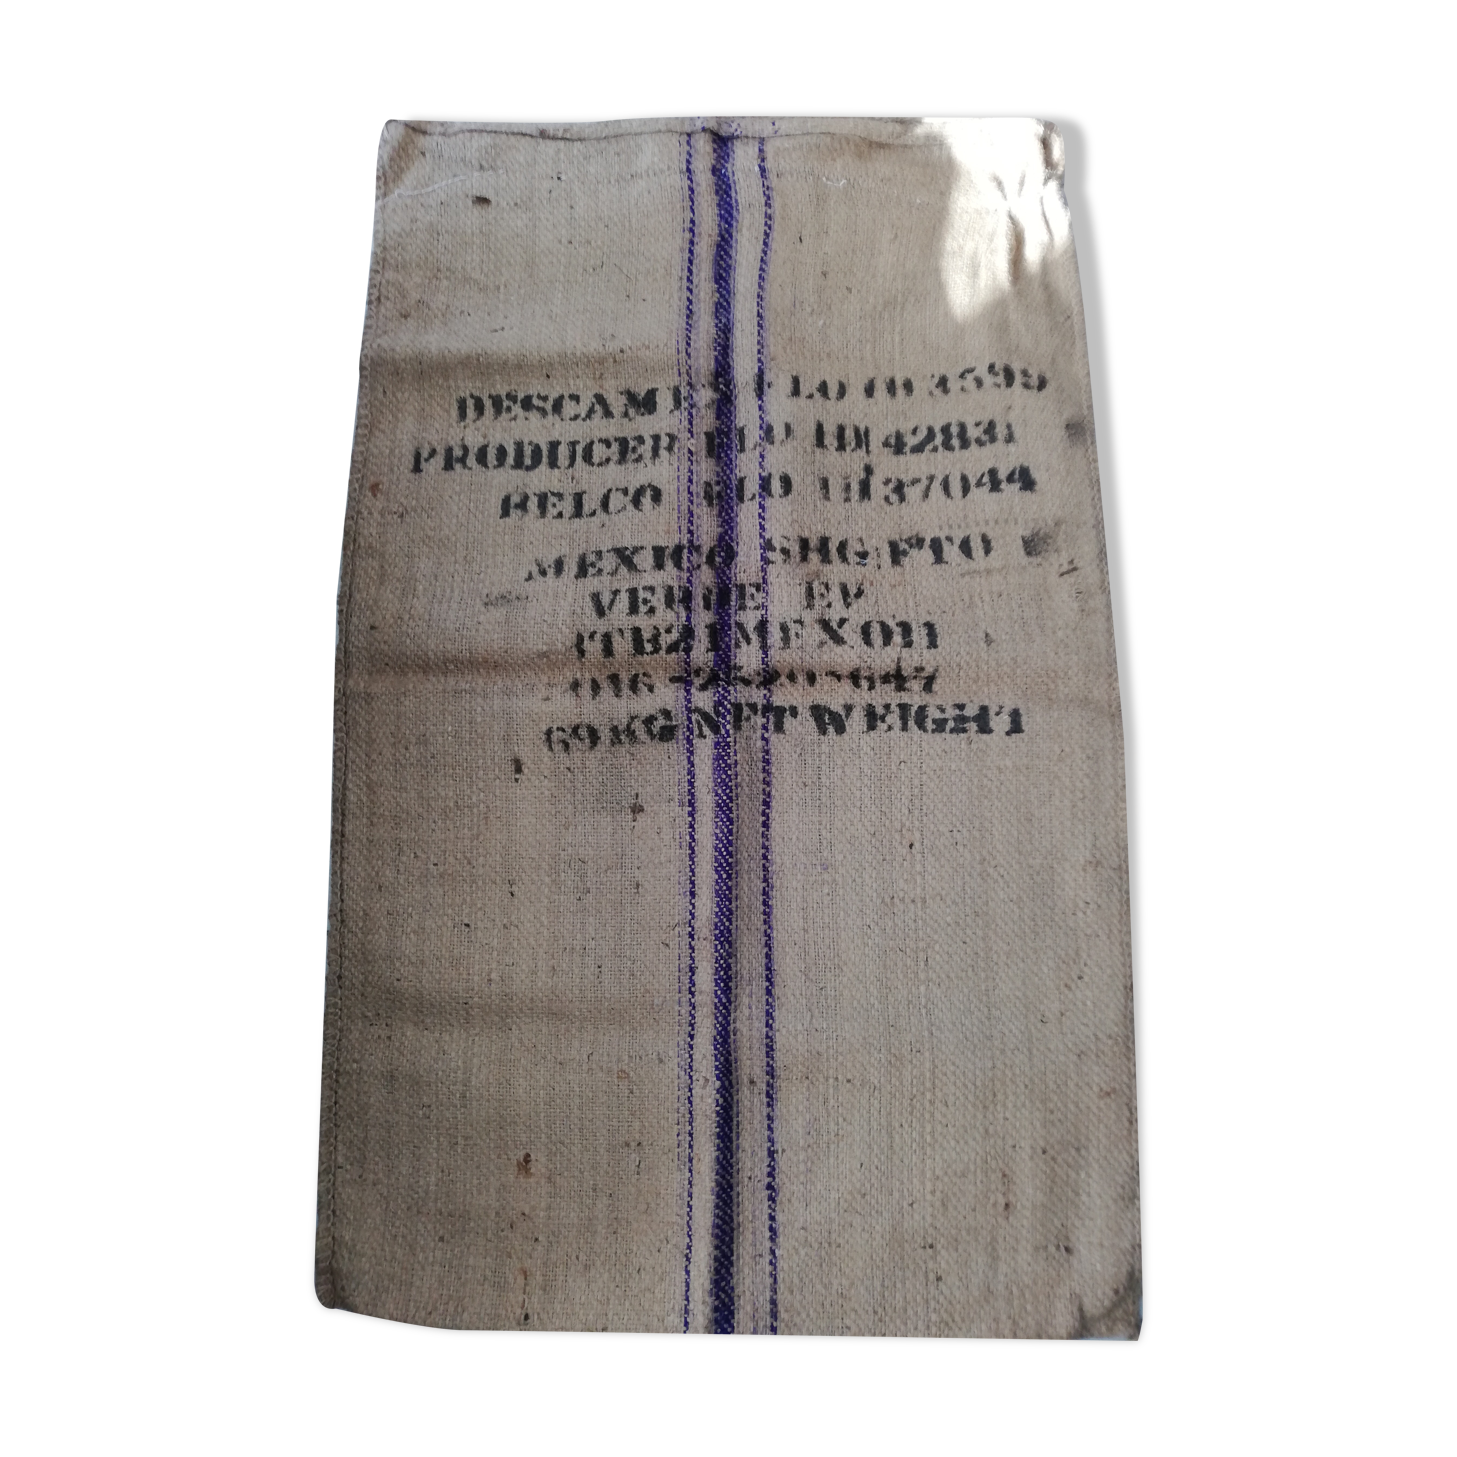 DESCAMEX FLO ID 3595
PRODUCER FLO ID 42831
BELCO FLO ID 37044
MEXICO SHG PTO
VERDE EP
69 KG NET WEIGHT